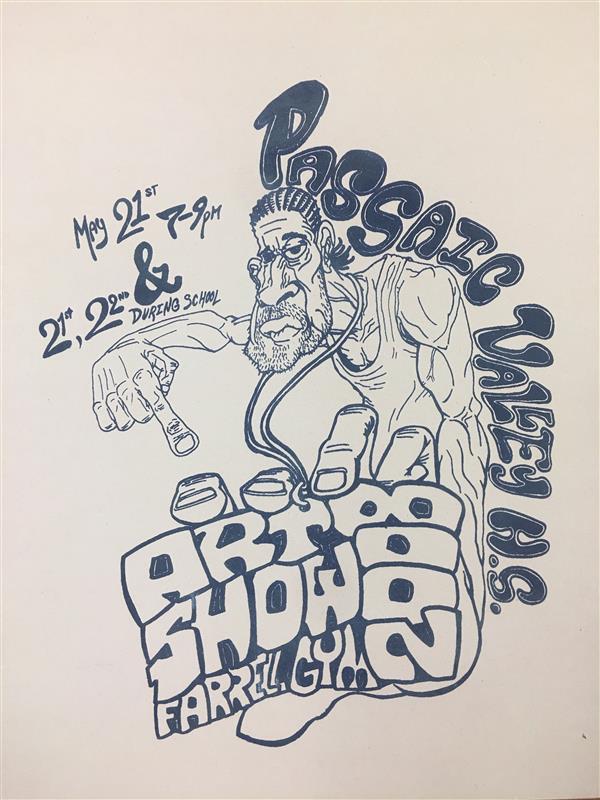 PASSAIC VALLEY H.S.
MAY 21ST 7-9PM
&
21ST, 22ND DURING SCHOOL
ART
SHOW
FARRELL GYM
2008